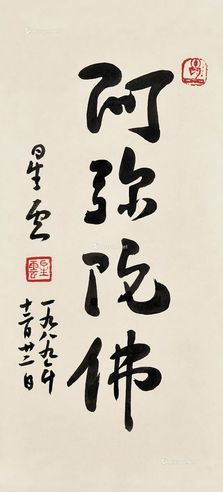 阿弥陀佛
星云
一九八九年
十二月廿二日